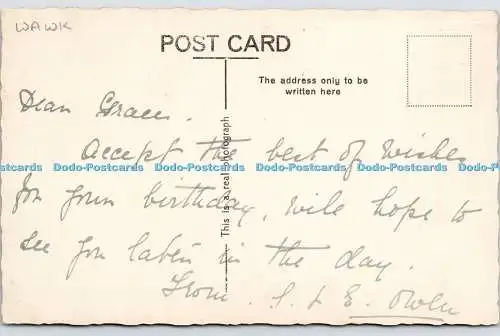 WAWK
POST CARD
The address only to be
written here
This is a real photograph
Dear Grace.
Accept the best of Wishes
Dodo-Postcards Dodo-Postcards Dodo-Postcards Dodo-Postcards Dodo-Postcards
for your birthday, will hope to
see you later in the day.
From. S. & E. Owen